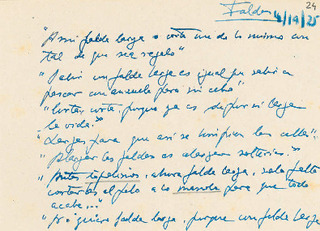 24
Faldas 4/19/25
"A mi falda larga o corta me da lo mismo con
tal de que sea regalo"
" falda larga es igual que salir a
pescar con anzuelo pero sin cebo"
"Corta, corta, porque ya es de por si larga
la vida."
"Larga, para que asi se limpien las calles".
"Alargar las faldas es alargar solterias."
"Antes , ahora falda larga, solo falta
cortarse el pelo a lo para que todo
acabe..."
"Si quiero falda larga, porque con falda larga